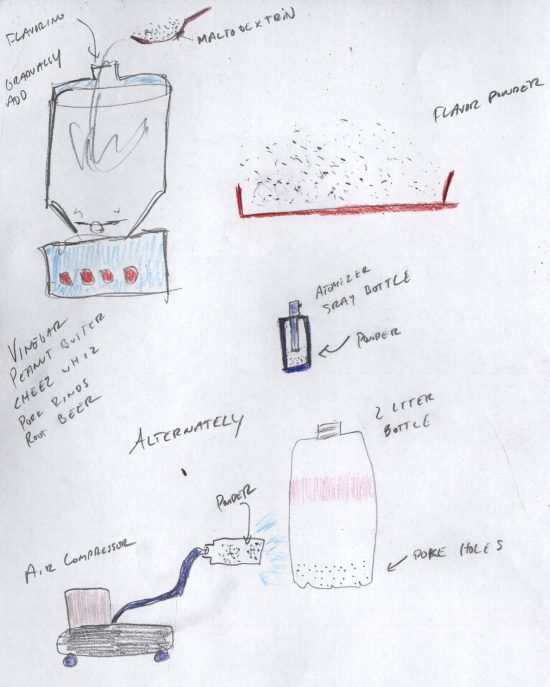 FLAVORING
MALTODEXTRIN
GRADUALLY
ADD
FLAVOR POWDER
ATOMIZER
SRAY BOTTLE
POWDER
VINEGAR
PEANUT BUTTER
CHEEZ WHIZ
PORK RINDS
ROOT BEER
ALTERNATELY
2 LITER
BOTTLE
POWDER
AIR COMPRESSOR
POKE HOLES